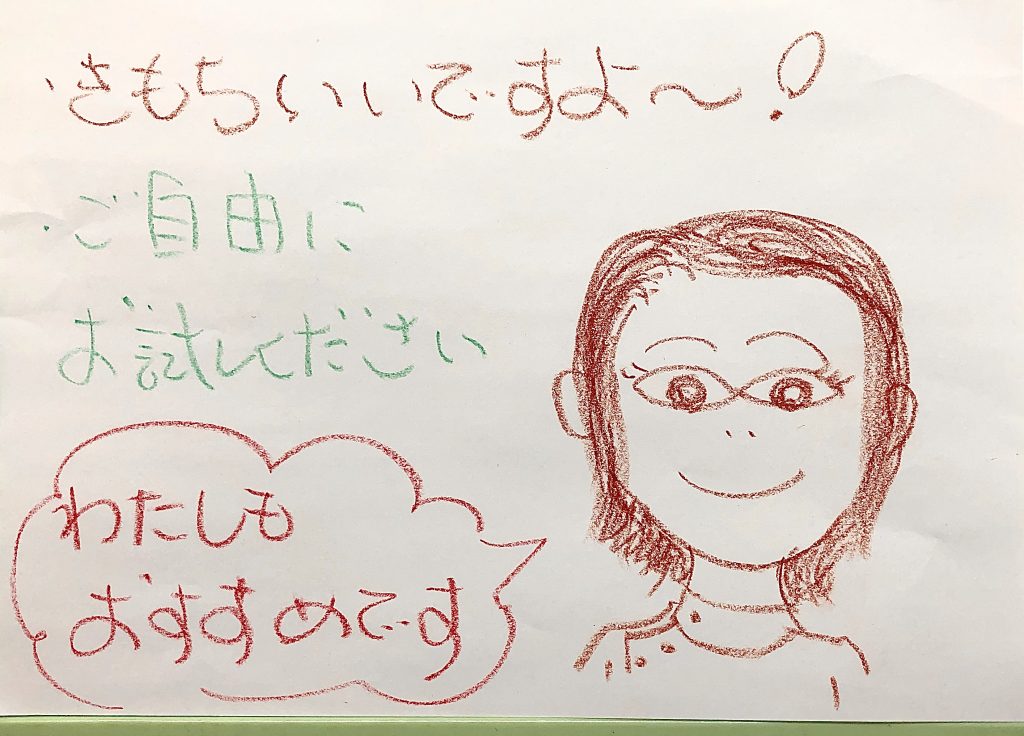 きもちいいですよ〜!
ご自由に
お試しください
わたしも
おすすめです